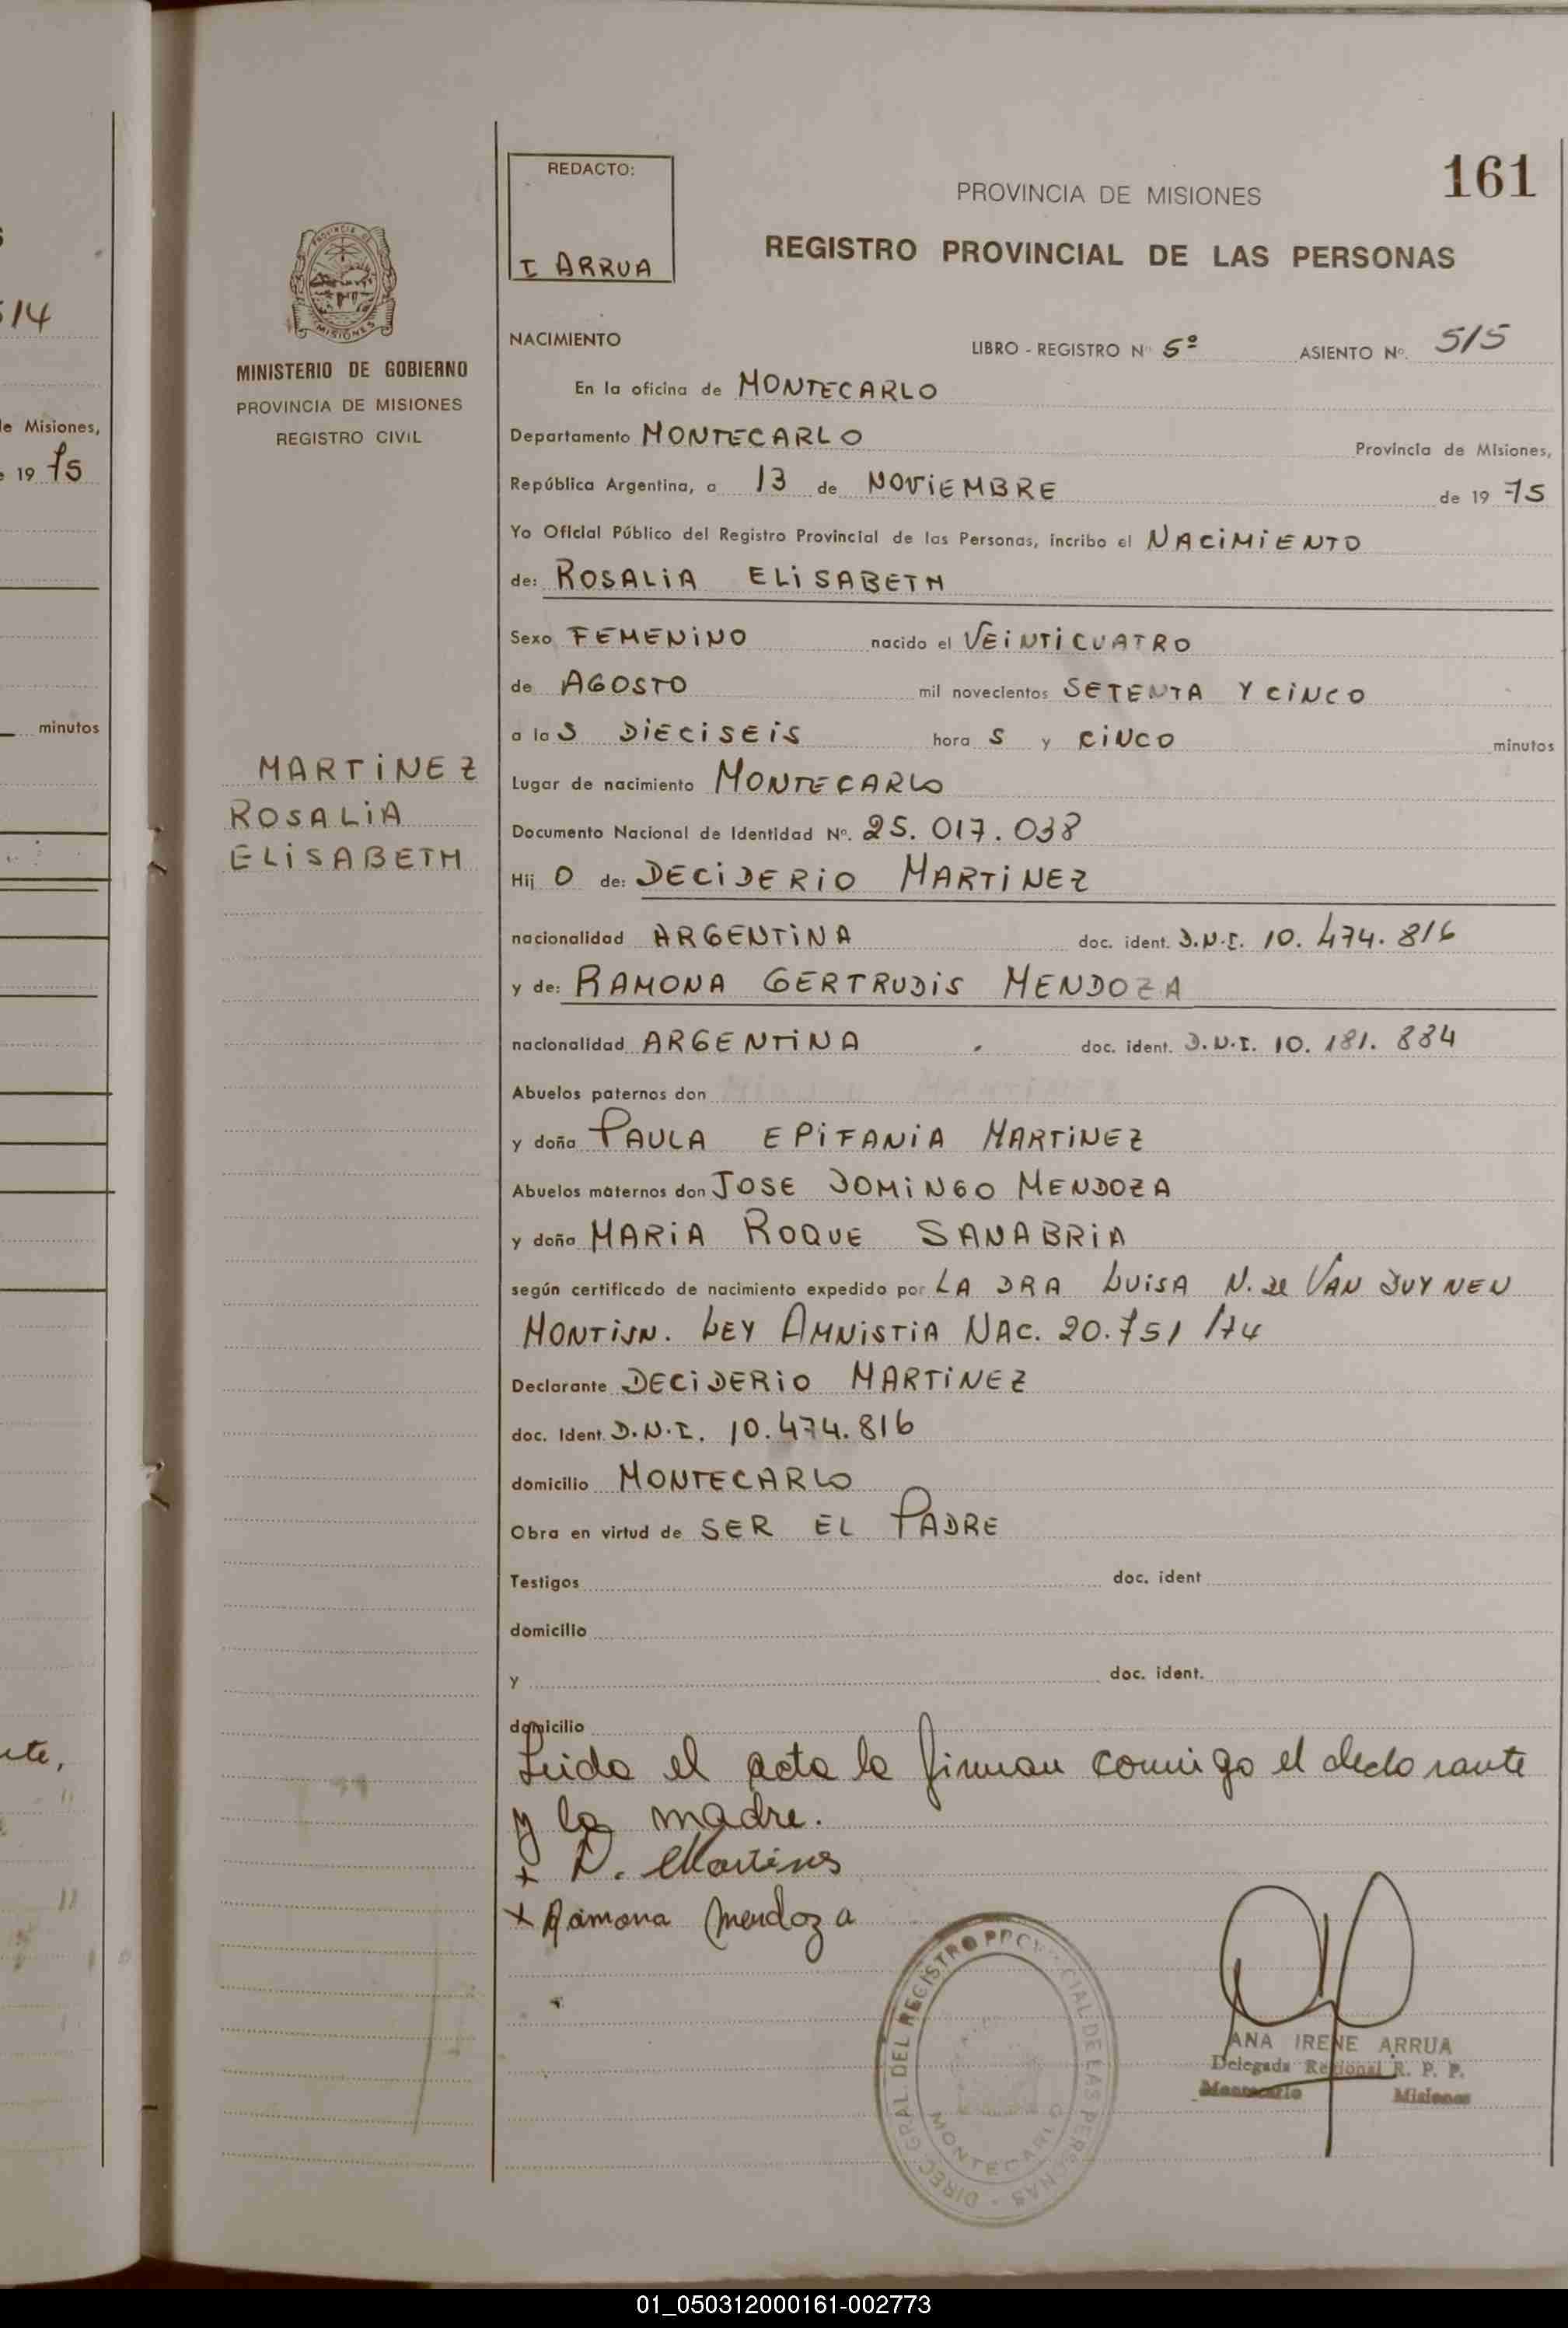 514
de Misiones,
19 75
minutos
161
REDACTO:
I ARRUA
PROVINCIA DE MISIONES
REGISTRO PROVINCIAL DE LAS PERSONAS
PROVINCIA DE MISIONES
MINISTERIO DE GOBIERNO
PROVINCIA DE MISIONES
REGISTRO CIVIL
NACIMIENTO LIBRO - REGISTRO Nº 5º ASIENTO Nº. 515
En la oficina de MONTECARLO
Departamento MONTECARLO Provincia de Misiones,
República Argentina, a 13 de NOViEMBRE de 19 75
Yo Oficial Público del Registro Provincial de las Personas, incribo el NACiMiENTO
de: ROSALiA ELiSABETH
Sexo FEMENiNO nacido el VEiNTiCUATRO
de AGOSTO mil novecientos SETENTA Y CiNCO
a las DiECiSEiS horas y CiNCO minutos
MARTiNEZ
ROSALiA
ELiSABETH
Lugar de nacimiento MONTECARLO
Documento Nacional de Identidad Nº. 25.017.038
Hij O de: DECiDERiO MARTiNEZ
nacionalidad ARGENTiNA doc. ident. D.N.I. 10.474.816
y de: RAMONA GERTRUDiS MENDOZA
nacionalidad ARGENTiNA doc. ident. D.N.I. 10.181.884
Abuelos paternos don
y doña PAULA EPiFANiA MARTiNEZ
Abuelos maternos don JOSE DOMiNGO MENDOZA
y doña MARiA ROQUE SANABRiA
según certificado de nacimiento expedido por LA DRA LUiSA N. de VAN DUYNEN
LEY AMNiSTiA NAC. 20.751/74
Declarante DECiDERiO MARTiNEZ
doc. Ident. D.N.I. 10.474.816
domicilio MONTECARLO
Obra en virtud de SER EL PADRE
Testigos doc. ident
domicilio
y doc. ident.
domicilio
Leida el acta la firman conmigo el declarante
y la madre.
+ D. Martines
x Ramona Mendoza
DIREC. GRAL. DEL REGISTRO PROVINCIAL DE LAS PERSONAS
MONTECARLO
ANA IRENE ARRUA
Delegada Regional R. P. P.
Montecarlo Misiones
01_050312000161-002773